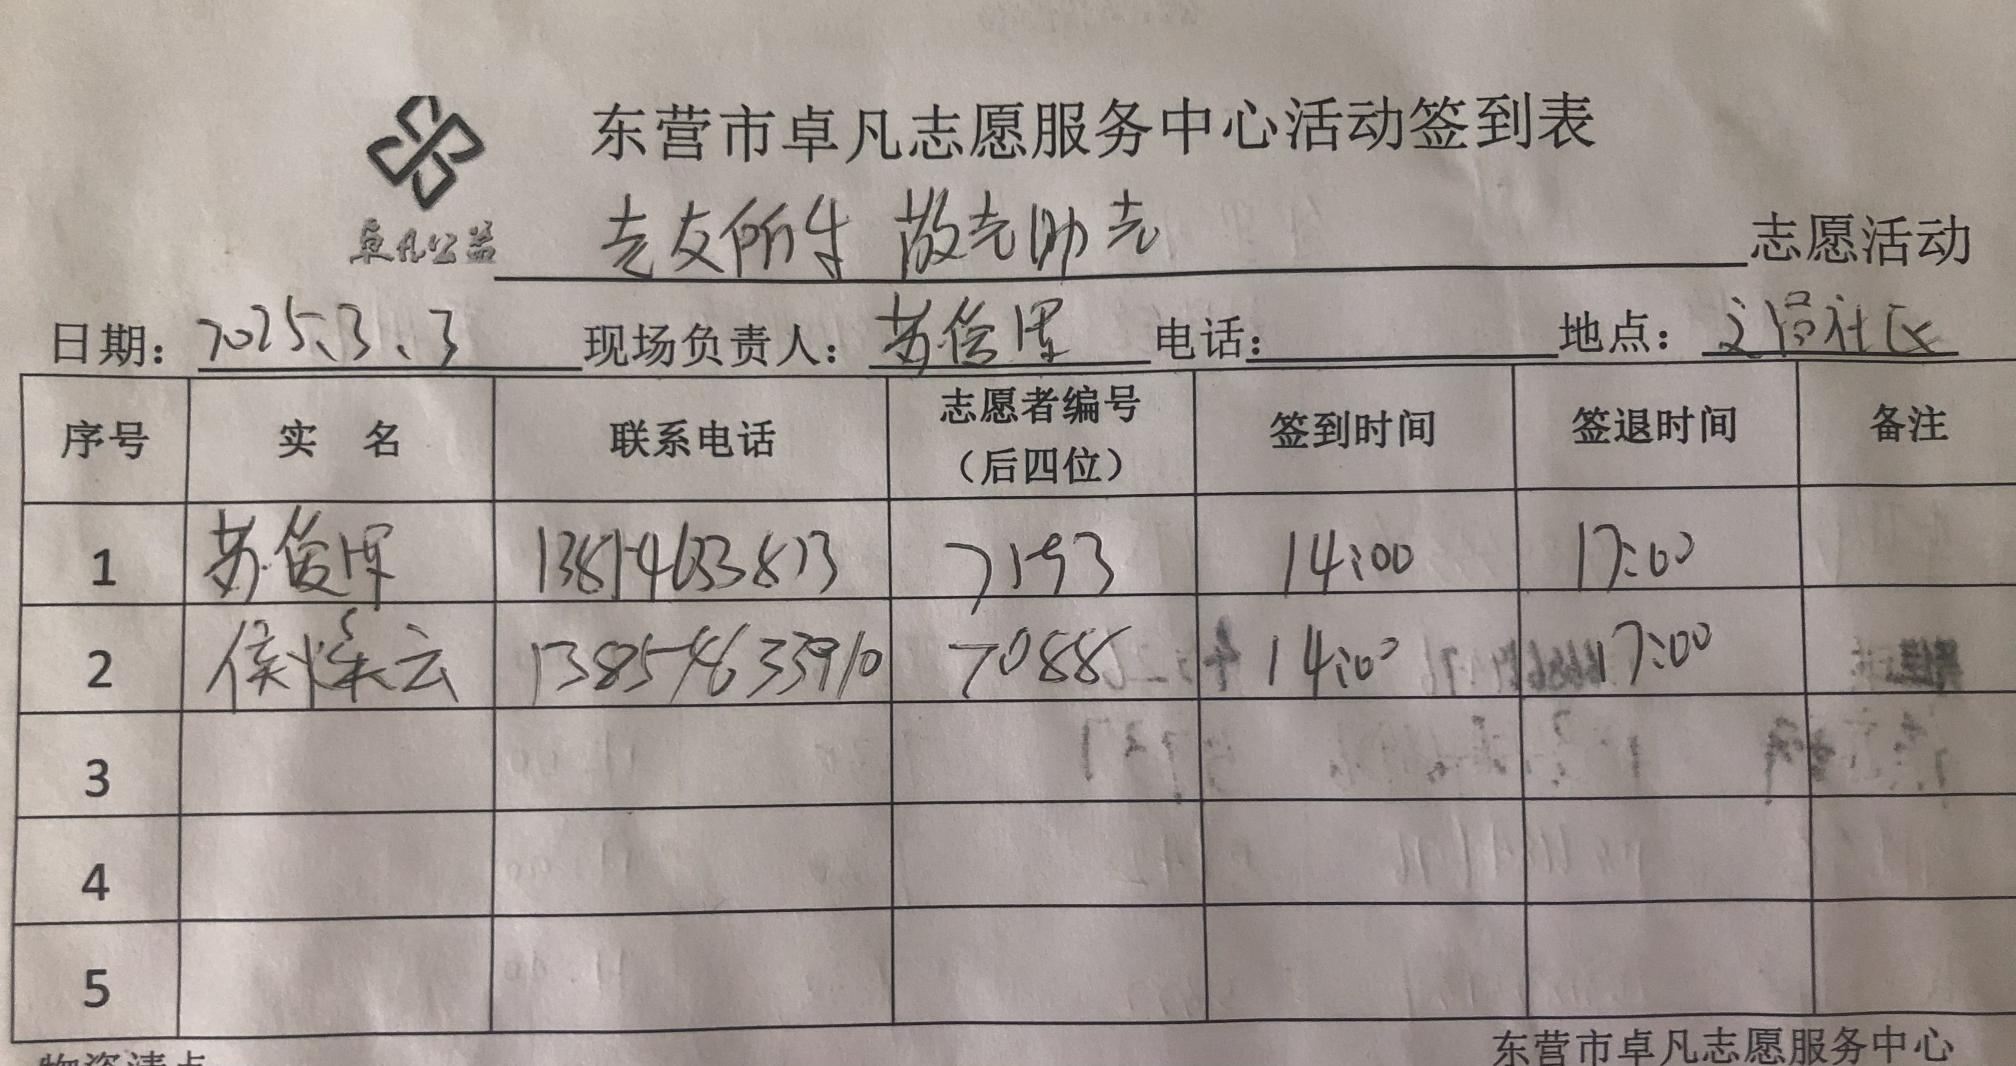 东营市卓凡志愿服务中心活动签到表
卓凡公益
老友所乐 敬老助老 志愿活动
日期：2025、3、3 现场负责人： 电话： 地点：社区
序号 实 名 联系电话 志愿者编号（后四位） 签到时间 签退时间 备注
1 苏 7193 14:00 17:00
2 侯 云 13854633910 7088 14:00 17:00
3
4
5
物资清点
东营市卓凡志愿服务中心